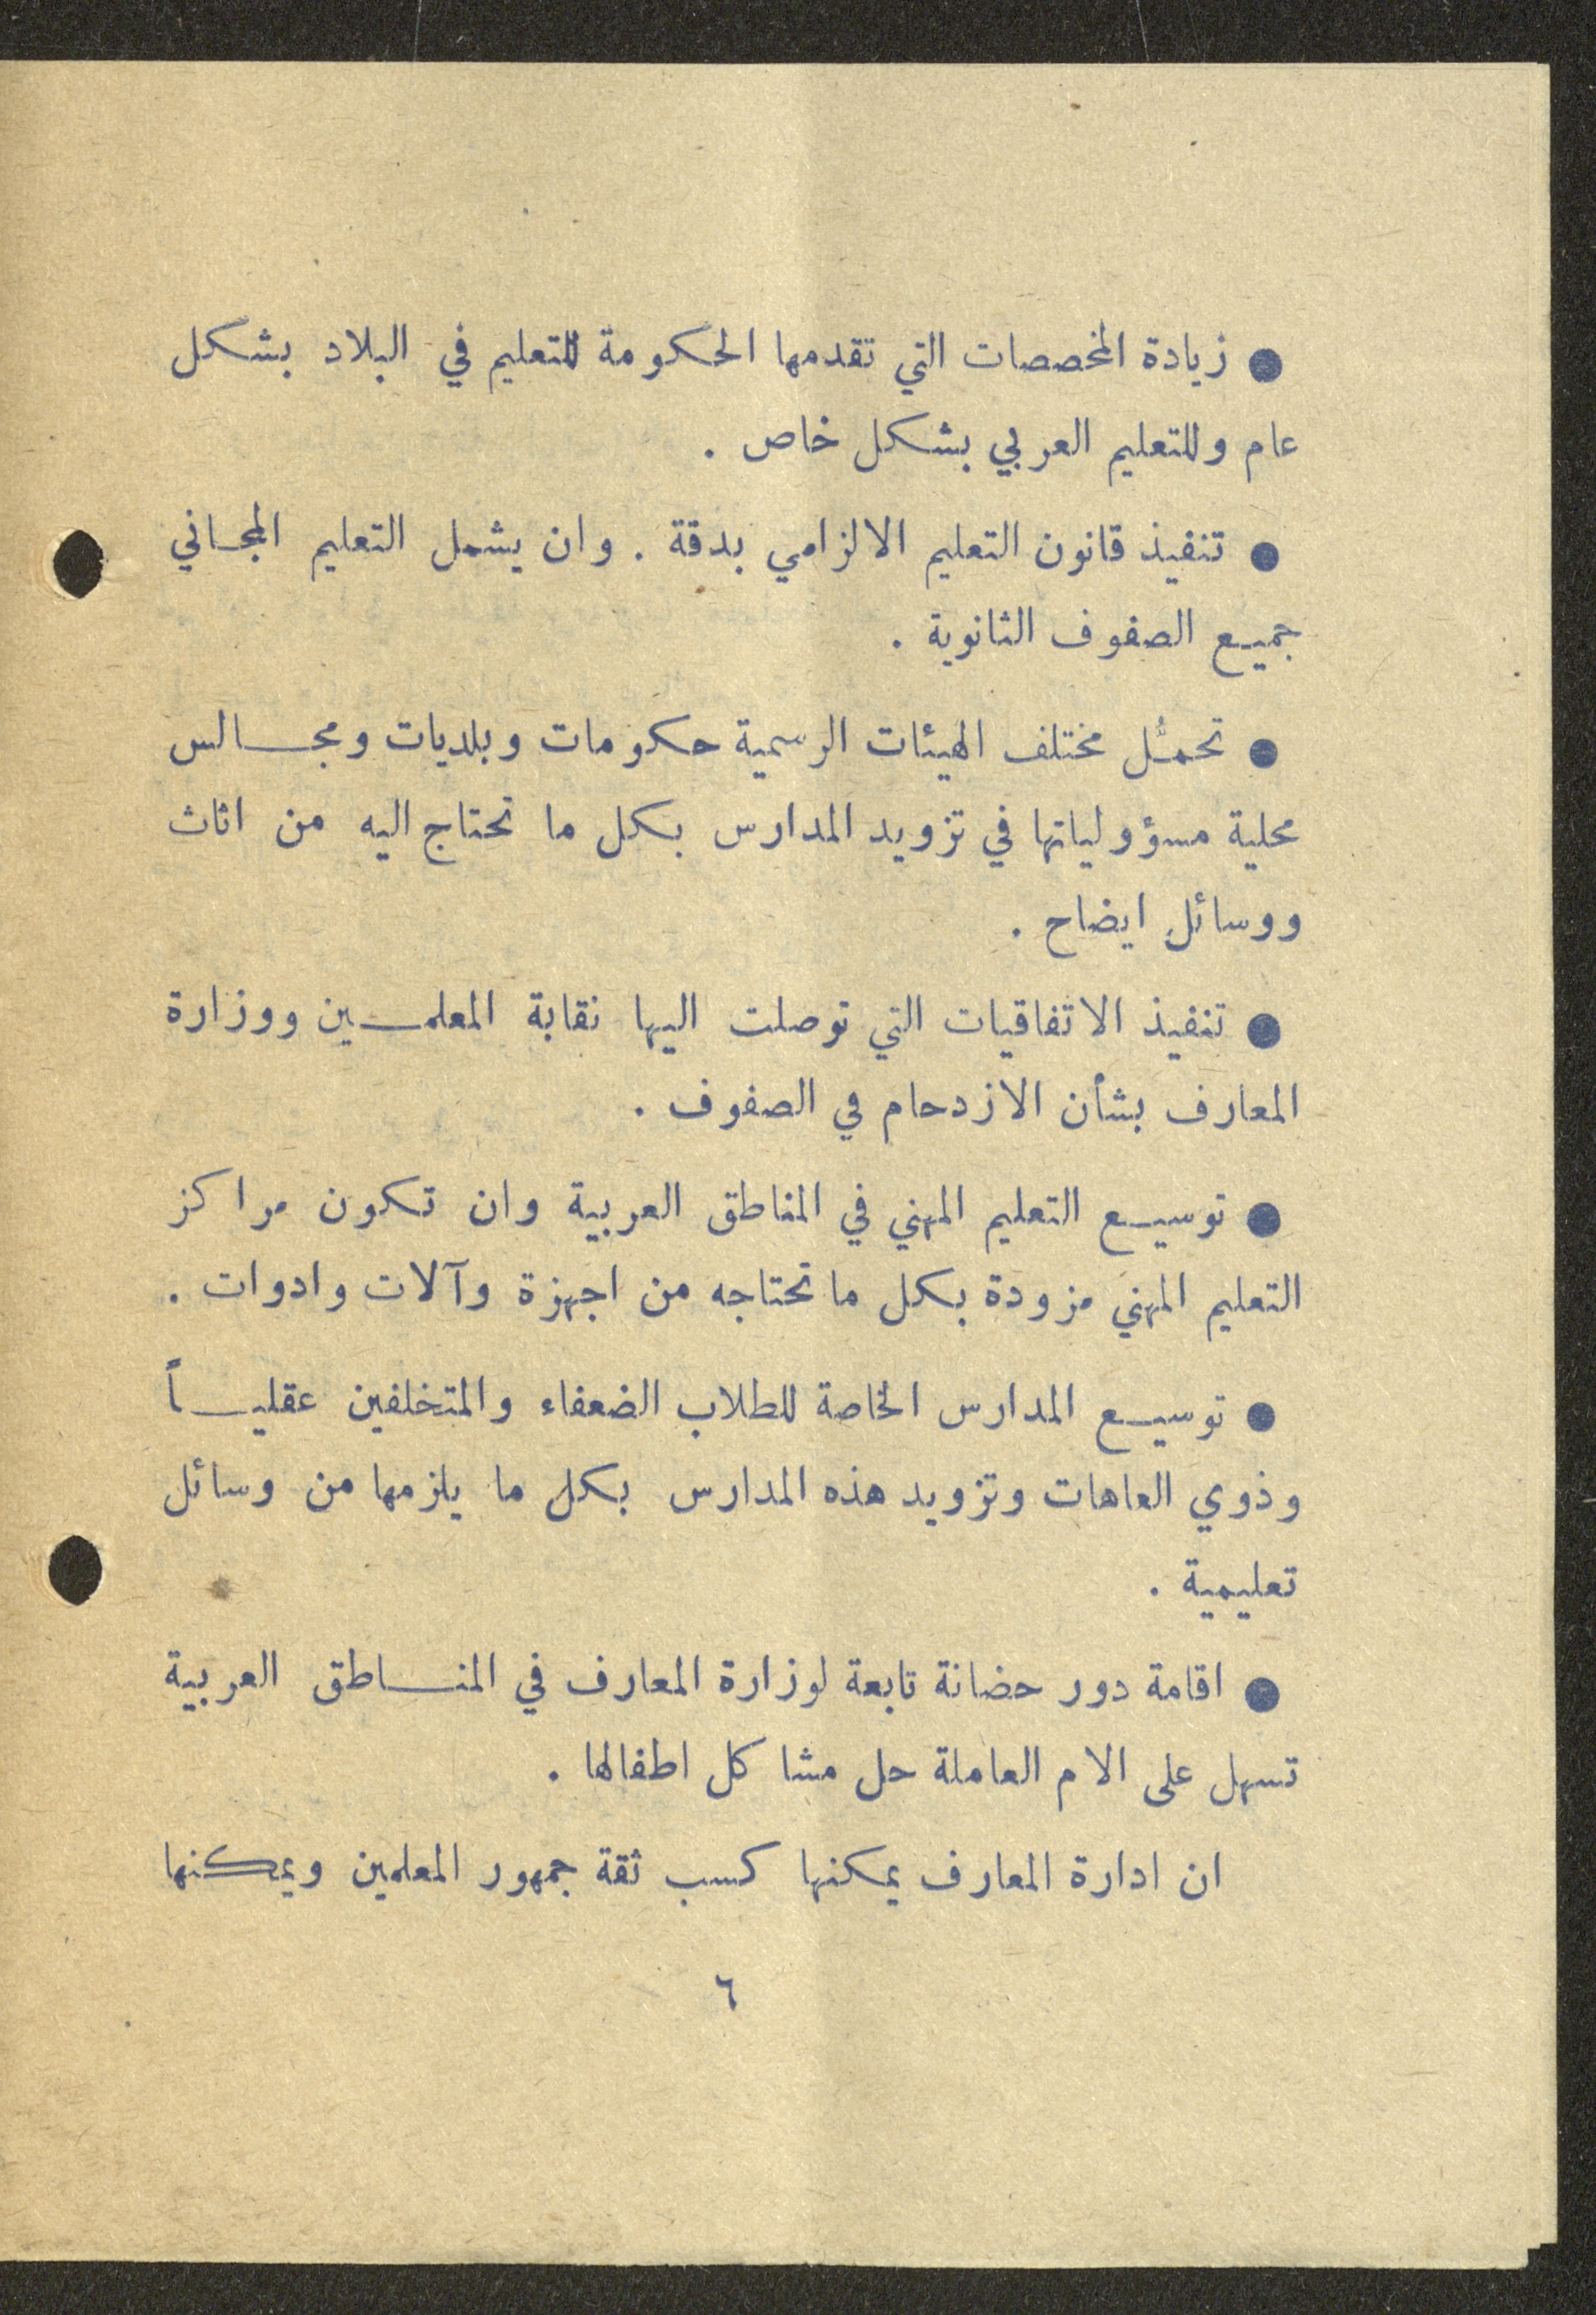 ● زيادة المخصصات التي تقدمها الحكومة للتعليم في البلاد بشكل
عام وللتعليم العربي بشكل خاص .
● تنفيذ قانون التعليم الالزامي بدقة . وان يشمل التعليم المجاني
جميع الصفوف الثانوية .
● تحمُّل مختلف الهيئات الرسمية حكومات وبلديات ومجالس
محلية مسؤولياتها في تزويد المدارس بكل ما تحتاج اليه من اثاث
ووسائل ايضاح .
● تنفيذ الاتفاقيات التي توصلت اليها نقابة المعلمين ووزارة
المعارف بشأن الازدحام في الصفوف .
● توسيع التعليم المهني في المناطق العربية وان تكون مراكز
التعليم المهني مزودة بكل ما تحتاجه من اجهزة وآلات وادوات .
● توسيع المدارس الخاصة للطلاب الضعفاء والمتخلفين عقلياً
وذوي العاهات وتزويد هذه المدارس بكل ما يلزمها من وسائل
تعليمية .
● اقامة دور حضانة تابعة لوزارة المعارف في المناطق العربية
تسهل على الام العاملة حل مشاكل اطفالها .
ان ادارة المعارف يمكنها كسب ثقة جمهور المعلمين ويمكنها
٦